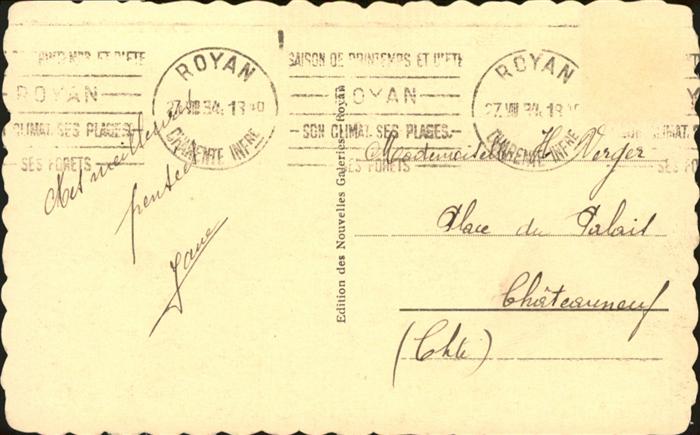 SAISON DE PRINTEMPS ET D'ETE
ROYAN
SON CLIMAT. SES PLAGES.
SES FORETS
ROYAN
27 VIII 34. 18
CHARENTE INFRE
SAISON DE PRINTEMPS ET D'ETE
ROYAN
SON CLIMAT. SES PLAGES.
SES FORETS
ROYAN
27. VIII 34. 18
CHARENTE INFRE
SON CLIMAT
SES FO
Mes meilleures
pensées
Jane
Edition des Nouvelles Galeries - Royan
Mademoiselle H Verger
Place du Palais
Châteauneuf
(Chte)